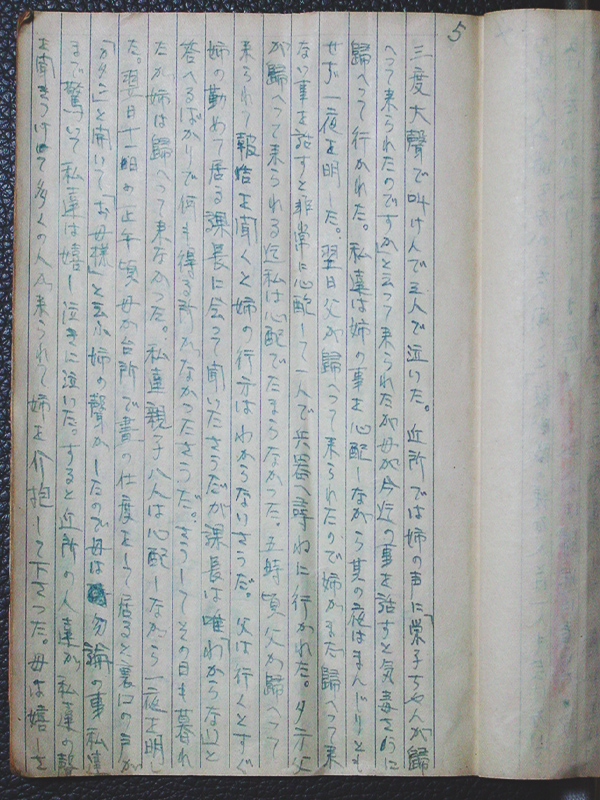 5
三度大聲で叫けんで三人で泣いた。近所では姉の声に「栄子ちやんが歸
へつて来られたのですか」と云つて来られたが母が今迄の事を話すと気毒さうに
歸へつて行かれた。私達は姉の事を心配しながら其の夜はまんじりとも
せず一夜を明した。翌日父が歸へつて来られたので姉がまだ歸へつて来
ない事を話すと非常に心配して一人で兵器へ尋ねに行かれた。夕方父
が歸へつて来られる迄私は心配でたまらなかつた。五時頃父が歸へつて
来られて報告を聞くと姉の行方はわからないさうだ。父は行くとすぐ
姉の勤めて居る課長に会つて聞いたさうだが課長は唯「わからない」と
答へるばかりで何も得る所がなかつたさうだ。さうしてその日も暮れ
たが姉は歸へつて来なかつた。私達親子八人は心配しながら一夜を明し
た。翌日十一日の正午頃母が台所で晝の仕度をして居ると裏口の戸が
「ガタン」と開いて「お母様」と云ふ姉の聲がしたので母は勿論の事私達
まで驚いて私達は嬉し泣きに泣いた。すると近所の人達が私達の聲
を聞きつけて多くの人々来られて姉を介抱して下さつた。母は嬉しさ